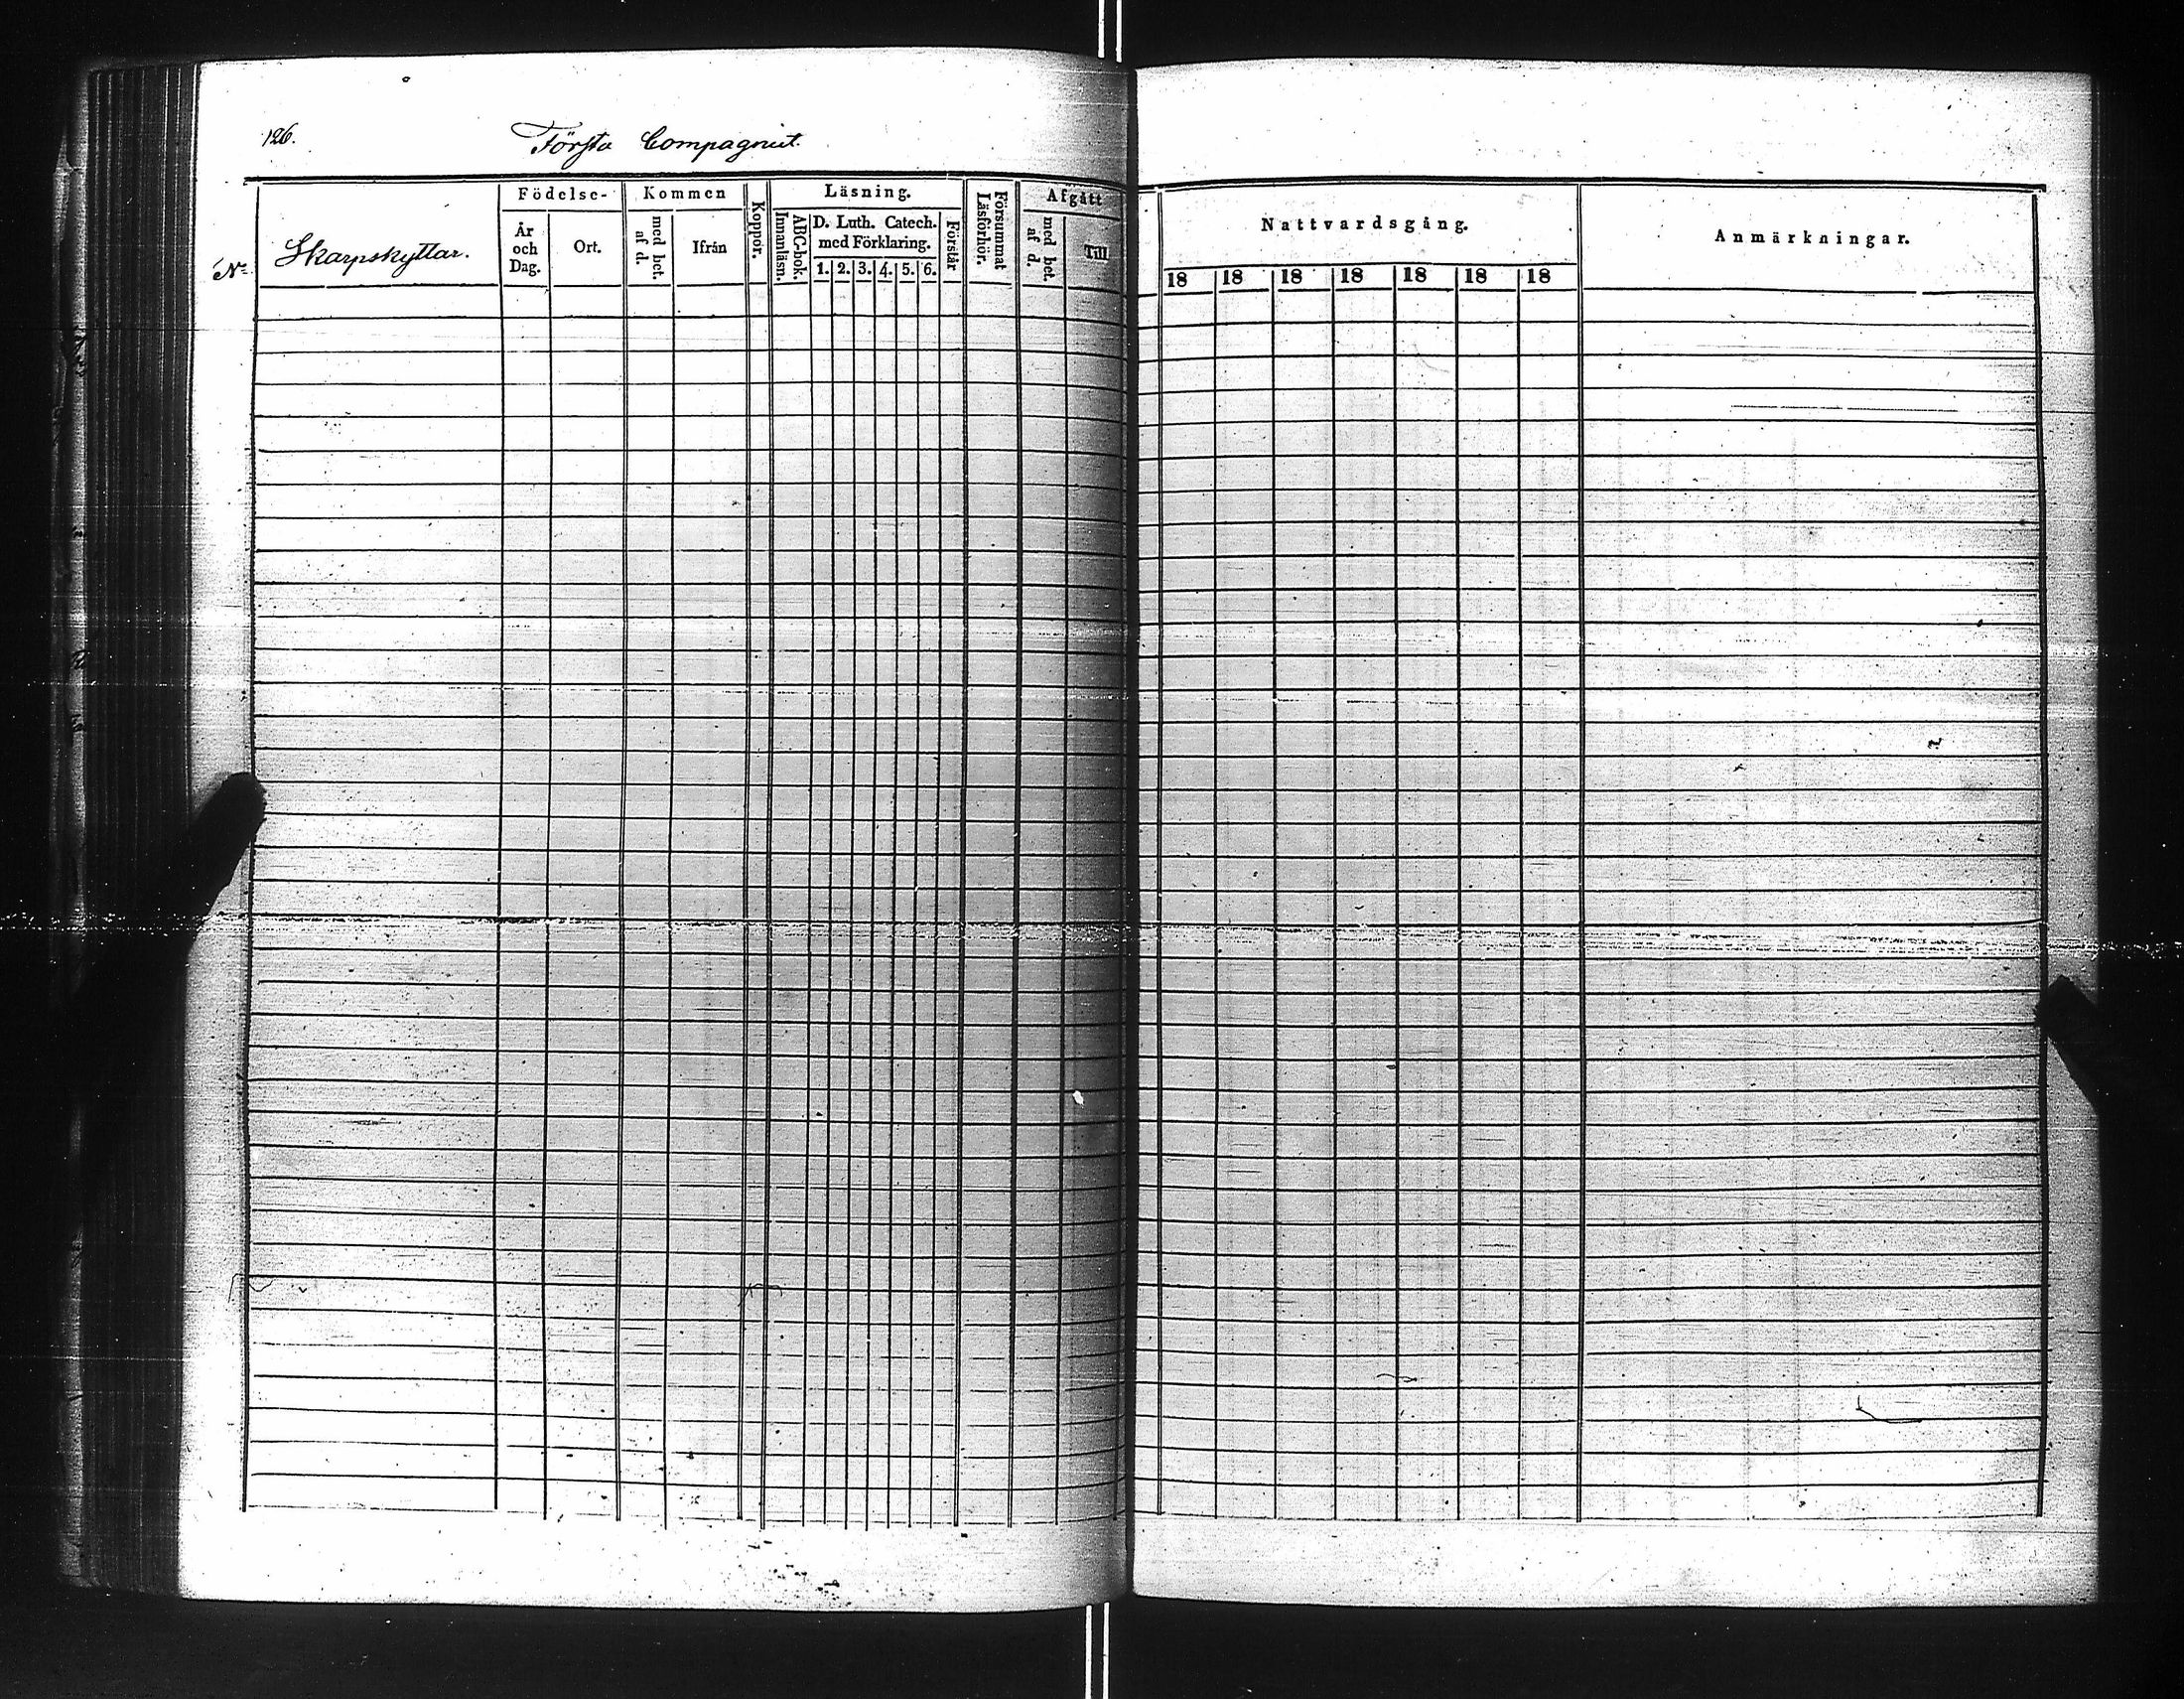 126.
Första Compagniet.
No
Skarpskyttar.
Födelse-
År
och
Dag.
Ort.
Kommen
med bet.
af d.
Ifrån
Koppor.
Läsning.
ABC-bok.
Innanläsn.
D. Luth. Catech.
med Förklaring.
1. 2. 3. 4. 5. 6.
Förstår
Försummat
Läsförhör.
Afgått
med bet.
af d.
Till
Nattvardsgång.
18 18 18 18 18 18 18
Anmärkningar.